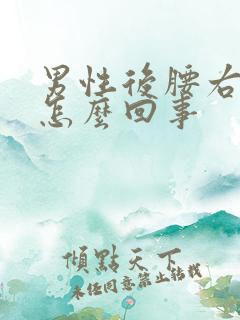 男性後腰右
怎麼回事
傾點天下
未經同意禁止轉載